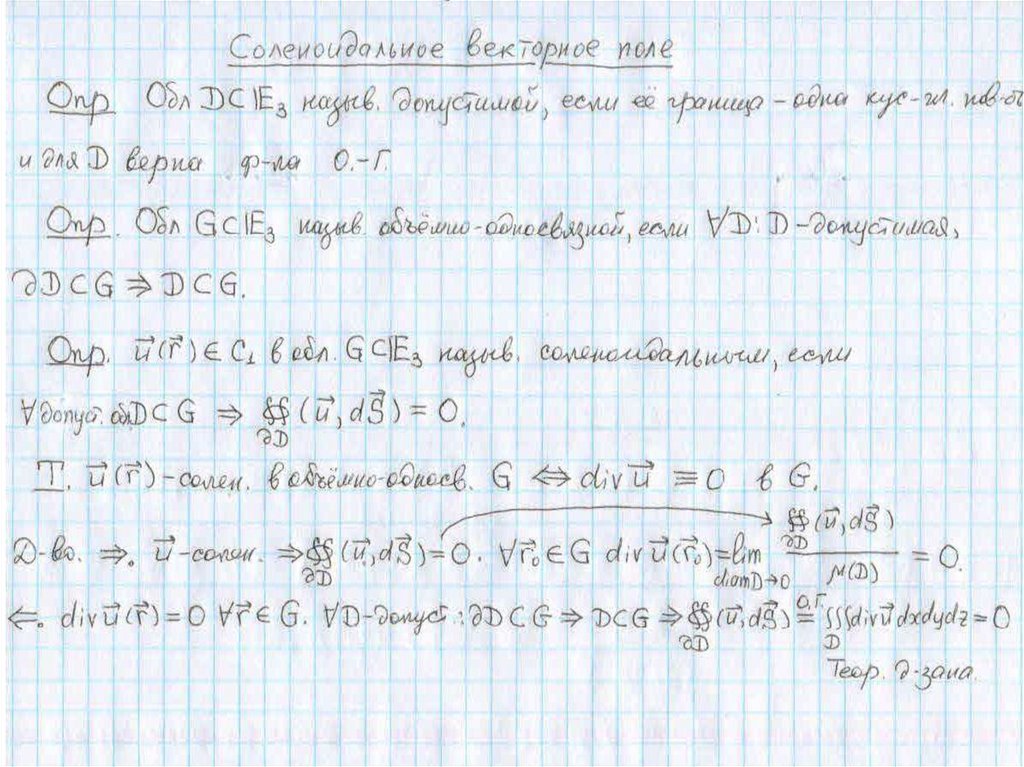 Соленоидальное векторное поле
Опр Обл D⊂𝔼₃ назыв. допустимой, если её граница – одна кус-гл. пов-ть
и для D верна ф-ла О.-Г.
Опр. Обл G⊂𝔼₃ назыв объёмно-односвязной, если ∀D: D-допустимая,
∂D⊂G ⇒ D⊂G.
Опр. u⃗(r⃗)∈C₁ в обл. G⊂𝔼₃ назыв. соленоидальным, если
∀допуст. обл D⊂G ⇒ ∯_∂D (u⃗, dS⃗) = 0.
Т. u⃗(r⃗) – солен. в объёмно-односв. G ⇔ div u⃗ ≡ 0 в G.
Д-во. ⇒. u⃗-солен. ⇒ ∯_∂D (u⃗, dS⃗) = 0. ∀r⃗₀∈G div u⃗(r⃗₀) = lim_diamD→0 ∯_∂D (u⃗, dS⃗) / μ(D) = 0.
⇐. div u⃗(r⃗) = 0 ∀r⃗∈G. ∀D-допуст: ∂D⊂G ⇒ D⊂G ⇒ ∯_∂D (u⃗, dS⃗) =^О.Г. ∭_D div u⃗ dxdydz = 0
Теор. д-зана.